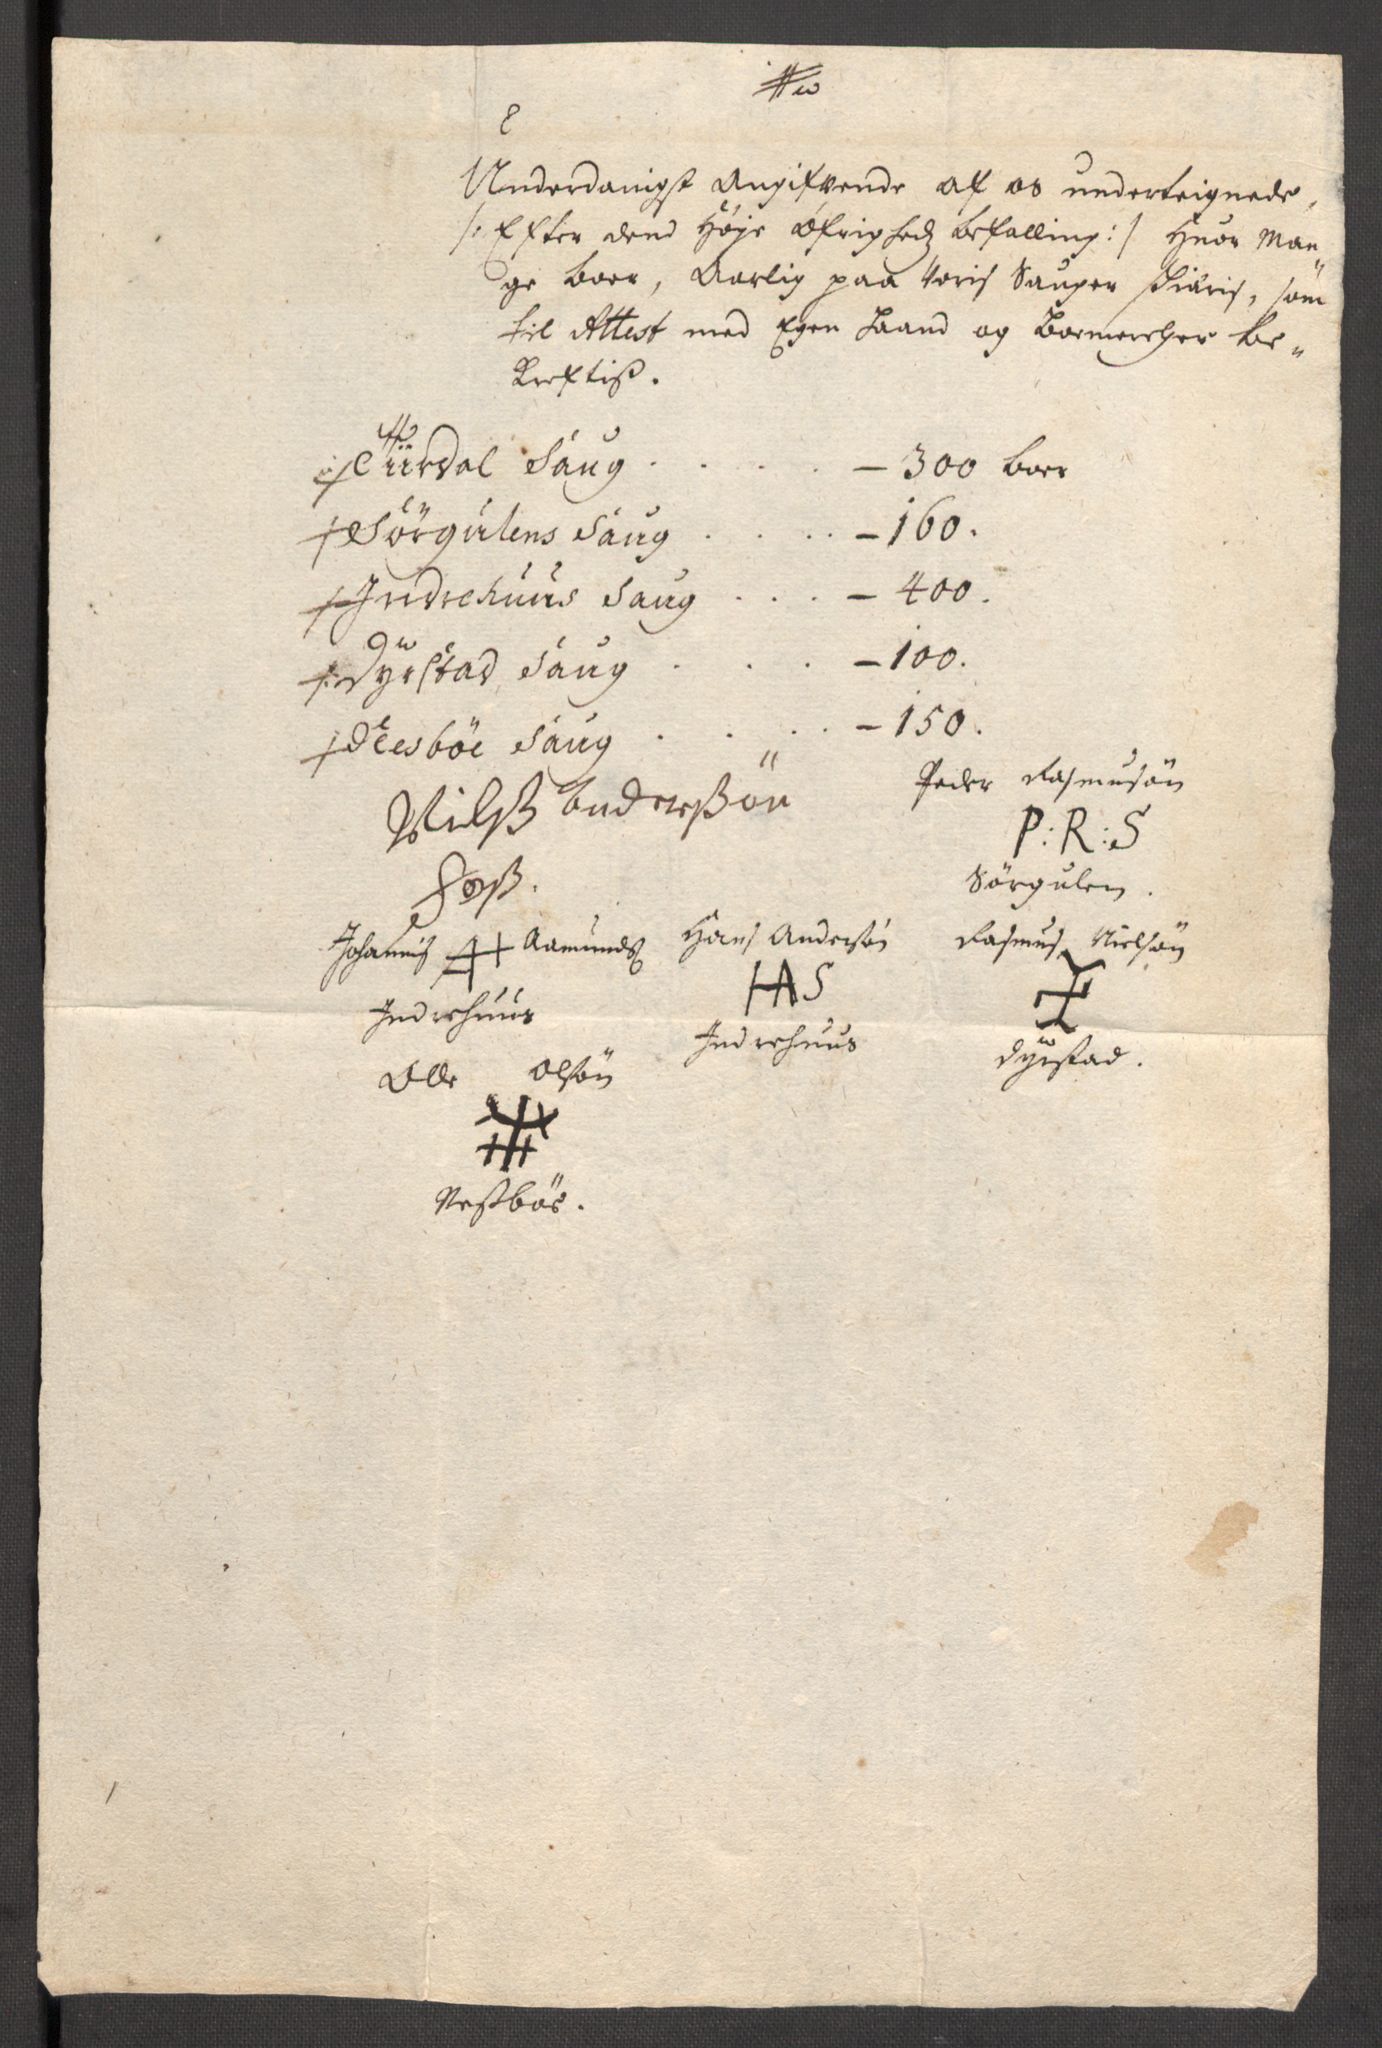 Underdanigst Angifvende af os underteignede,
/: Efter dend Høje Øfrigheds befalling :/ Huor Man„
ge boer, Aarlig paa voris Sauger skiæris, som
til Attest med Egen Haand og Boemercher be„
kreftiß.
Saug - 300 boer
Sörgulens Saug - 160.
Indrehuus Saug - 400.
Dyrstad Saug - 100.
Saug - 150.
Nielß Anderßön
Peder Rasmusön
P:R:S
Sörgulen.
Johannis Aamunds
Hans Andersön
Rasmus Nielsön
HAS
Indrehuus
Indrehuus
Dyrstad.
Olle Olsön